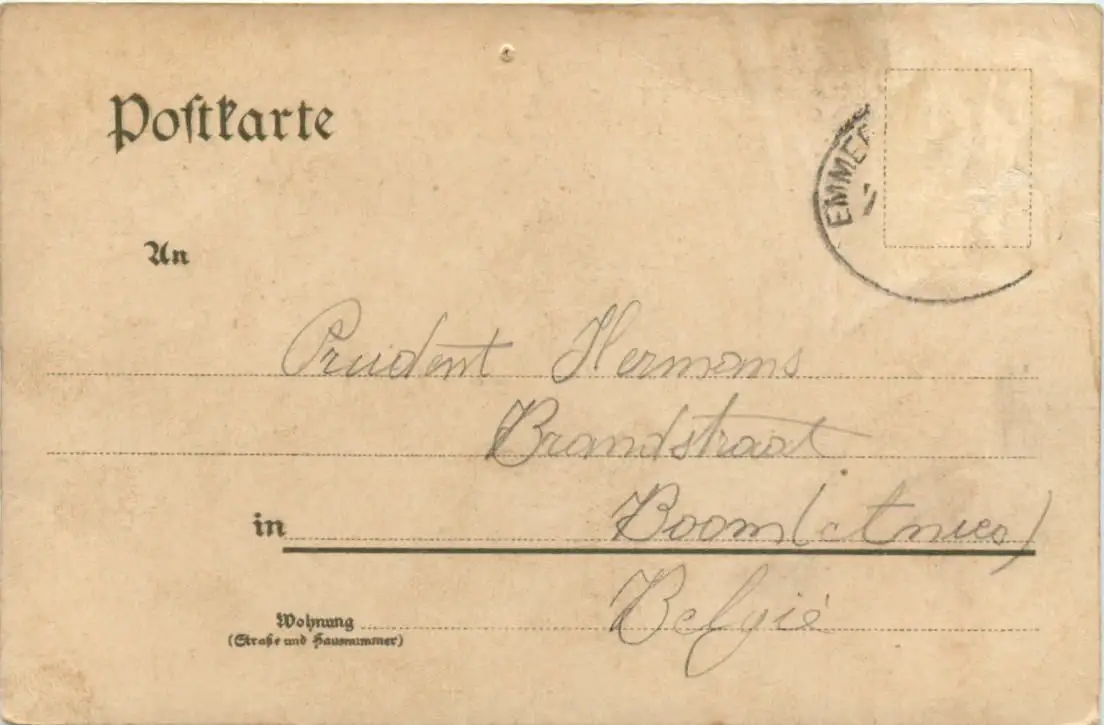 Postkarte
EMMER
An
Prudent Hermans
Brandstraat
in Boom (Anvers)
België
Wohnung
(Straße und Hausnummer)